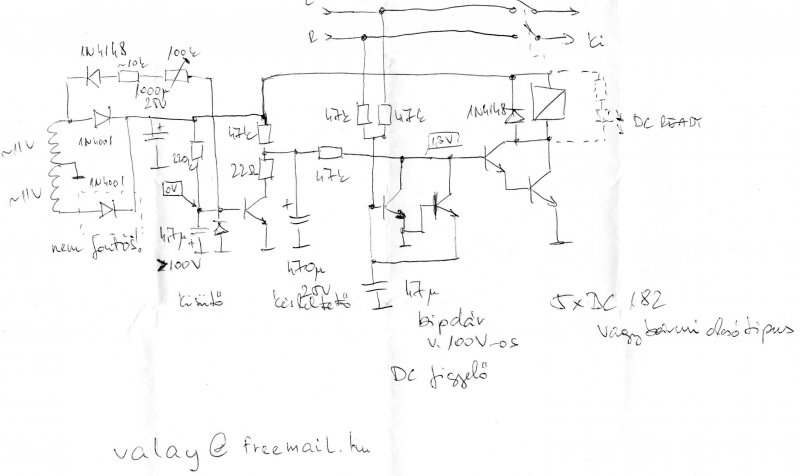 L
R
ki
1N4148
~10k
100k
1000µ
25V
~11V
1N4001
~11V
1N4001
nem fontos!
220k
0V
47µ
>100V
47k
22Ω
470µ
25V
kisütő
késleltető
47k
47k
47k
1,3V
1N4148
DC READY
47µ
bipolár
v. 100V-os
DC figyelő
5xBC 182
vagy bármi olcsó típus
valay@freemail.hu